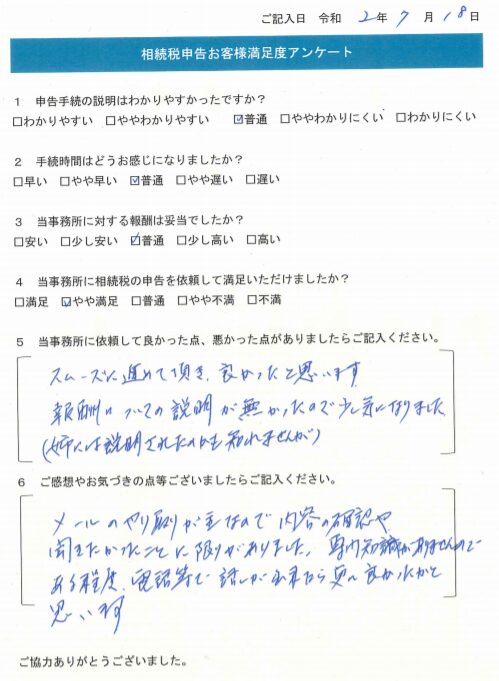 ご記入日 令和 2年 7月 18日
相続税申告お客様満足度アンケート
1 申告手続の説明はわかりやすかったですか?
□わかりやすい □ややわかりやすい ☑普通 □ややわかりにくい □わかりにくい
2 手続時間はどうお感じになりましたか?
□早い □やや早い ☑普通 □やや遅い □遅い
3 当事務所に対する報酬は妥当でしたか?
□安い □少し安い ☑普通 □少し高い □高い
4 当事務所に相続税の申告を依頼して満足いただけましたか?
□満足 ☑やや満足 □普通 □やや不満 □不満
5 当事務所に依頼して良かった点、悪かった点がありましたらご記入ください。
スムーズに進めて頂き、良かったと思います
報酬についての説明が無かったので少し気になりました
(姉には説明されたのかも知れませんが)
6 ご感想やお気づきの点等ございましたらご記入ください。
メールのやり取りが主なので内容の確認や
聞きたかったことに限りがありました。専門知識がありませんので
ある程度、電話等で話しが出来たら更に良かったかと
思います
ご協力ありがとうございました。